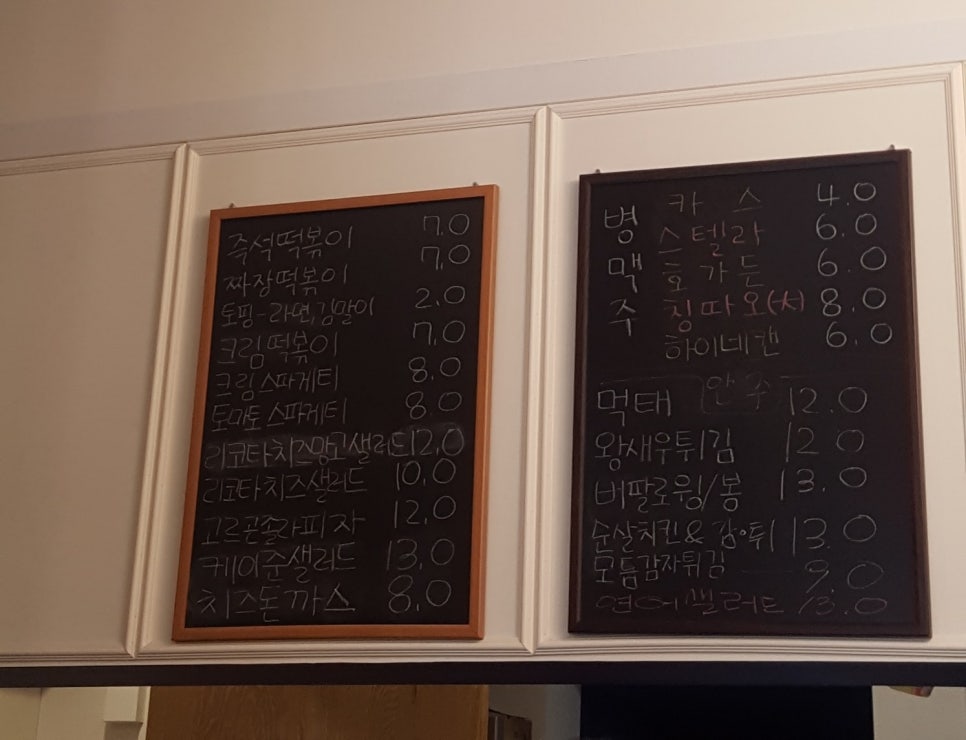 즉석떡볶이 7.0
짜장떡볶이 7.0
토핑-라면,김말이 2.0
크림떡볶이 7.0
크림스파게티 8.0
토마토스파게티 8.0
리코타치즈망고샐러드 12.0
리코타치즈샐러드 10.0
고르곤졸라피자 12.0
케이준샐러드 13.0
치즈돈까스 8.0
병맥주
카스 4.0
스텔라 6.0
호가든 6.0
칭따오(大) 8.0
하이네캔 6.0
안주
먹태 12.0
왕새우튀김 12.0
버팔로윙/봉 13.0
순살치킨&감튀 13.0
모듬감자튀김 9.0
연어샐러드 13.0